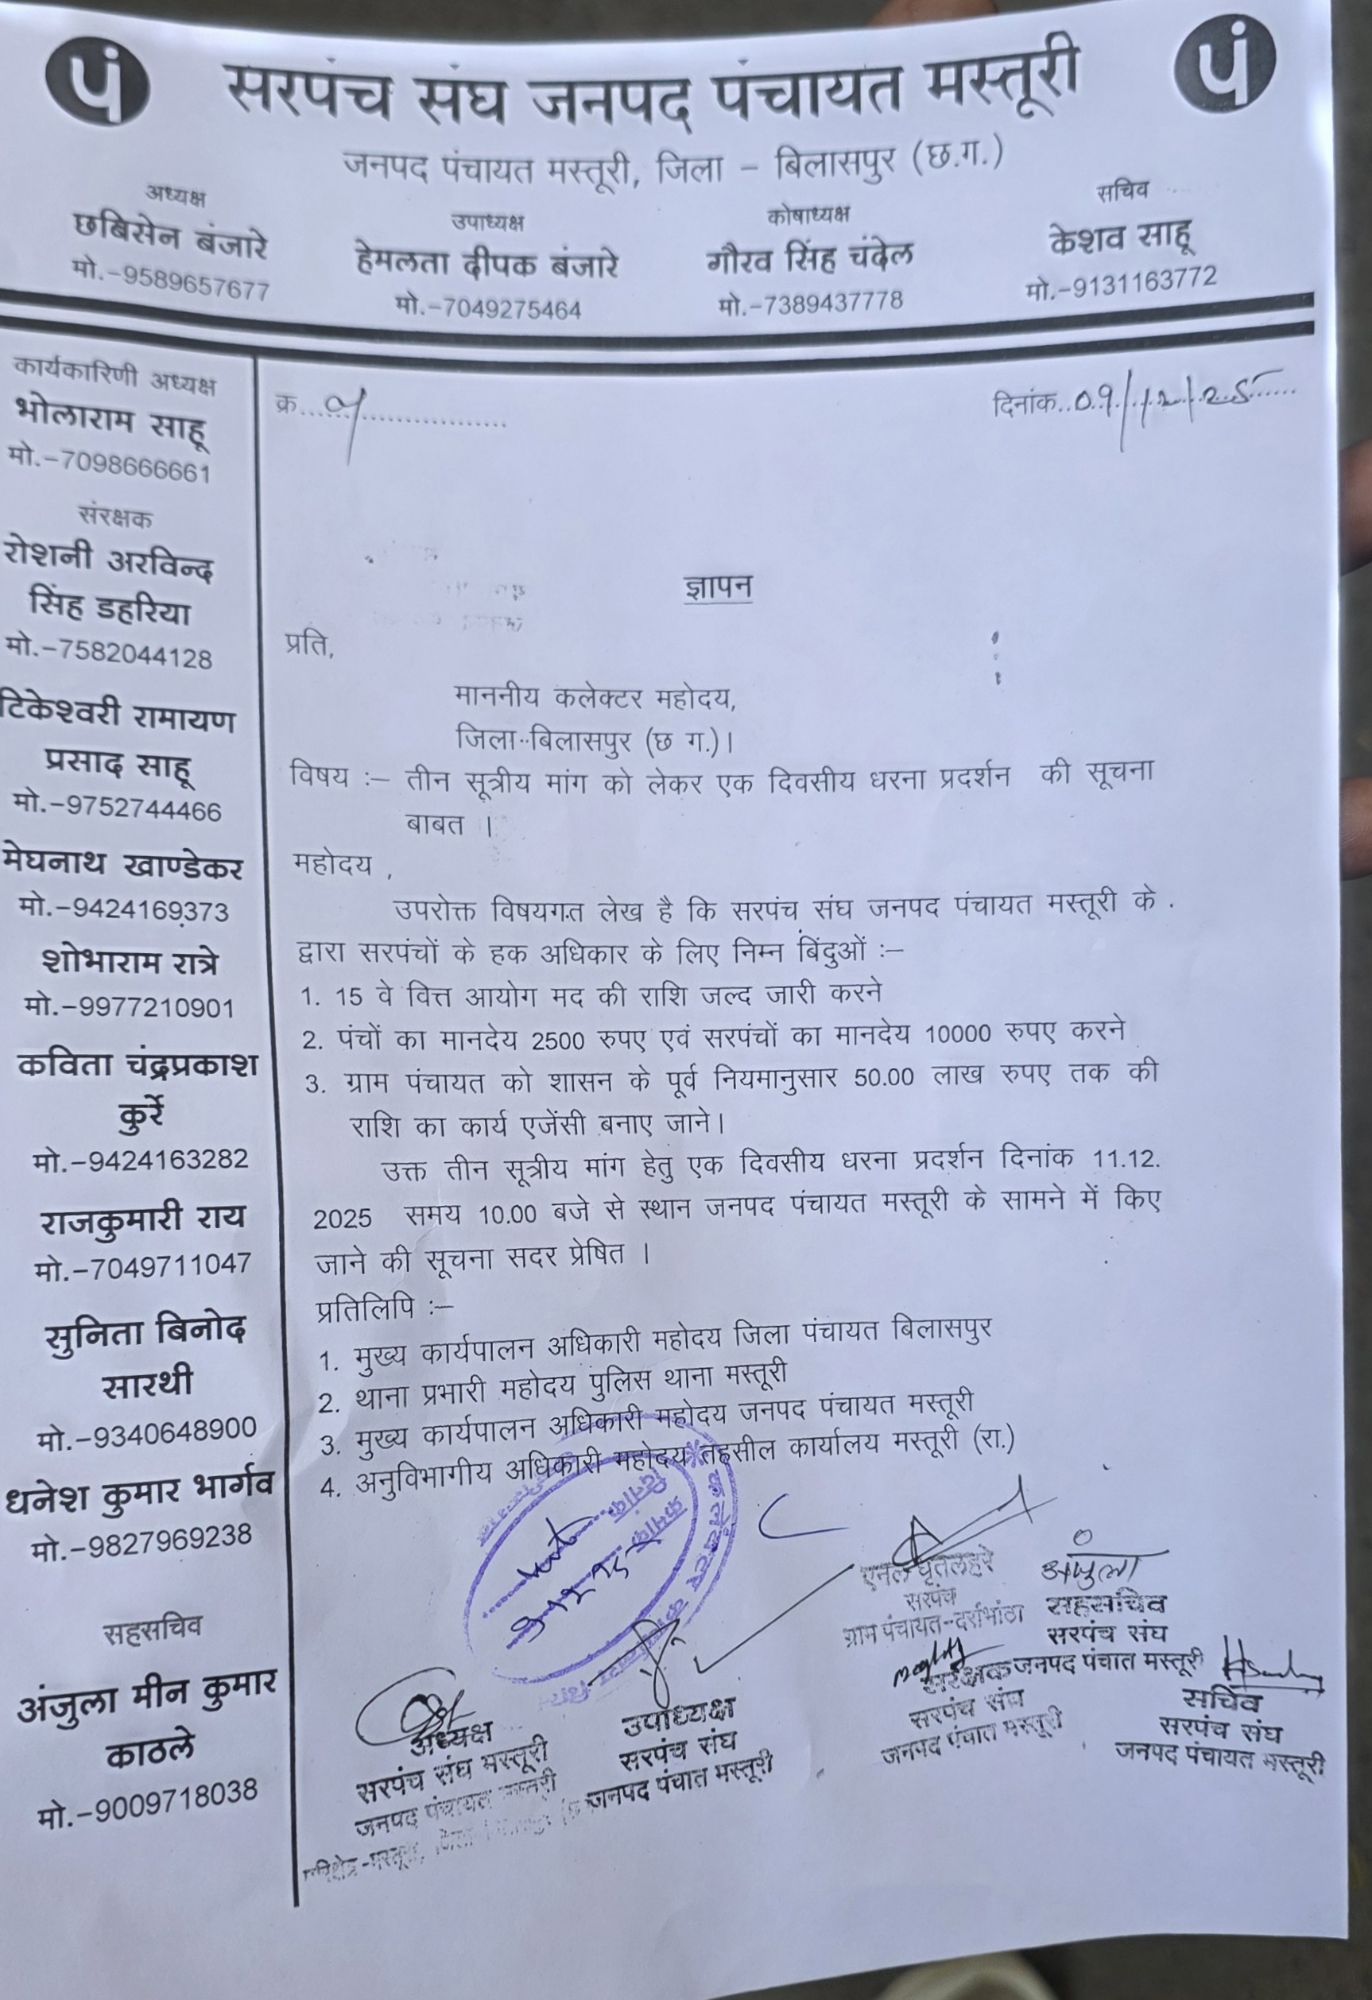 पं
सरपंच संघ जनपद पंचायत मस्तूरी
पं
जनपद पंचायत मस्तूरी, जिला – बिलासपुर (छ.ग.)
अध्यक्ष
छबिसेन बंजारे
मो.–9589657677
उपाध्यक्ष
हेमलता दीपक बंजारे
मो.–7049275464
कोषाध्यक्ष
गौरव सिंह चंदेल
मो.–7389437778
सचिव
केशव साहू
मो.–9131163772
कार्यकारिणी अध्यक्ष
भोलाराम साहू
मो.–7098666661
संरक्षक
रोशनी अरविन्द
सिंह डहरिया
मो.–7582044128
टिकेश्वरी रामायण
प्रसाद साहू
मो.–9752744466
मेघनाथ खाण्डेकर
मो.–9424169373
शोभाराम रात्रे
मो.–9977210901
कविता चंद्रप्रकाश
कुर्रे
मो.–9424163282
राजकुमारी राय
मो.–7049711047
सुनिता बिनोद
सारथी
मो.–9340648900
धनेश कुमार भार्गव
मो.–9827969238
सहसचिव
अंजुला मीन कुमार
काठले
मो.–9009718038
क्र...............
दिनांक..09/12/25......
ज्ञापन
प्रति,
माननीय कलेक्टर महोदय,
जिला–बिलासपुर (छ ग.)।
विषय :– तीन सूत्रीय मांग को लेकर एक दिवसीय धरना प्रदर्शन की सूचना
बाबत ।
महोदय ,
उपरोक्त विषयगत लेख है कि सरपंच संघ जनपद पंचायत मस्तूरी के
द्वारा सरपंचों के हक अधिकार के लिए निम्न बिंदुओं :–
1. 15 वे वित्त आयोग मद की राशि जल्द जारी करने
2. पंचों का मानदेय 2500 रुपए एवं सरपंचों का मानदेय 10000 रुपए करने
3. ग्राम पंचायत को शासन के पूर्व नियमानुसार 50.00 लाख रुपए तक की
राशि का कार्य एजेंसी बनाए जाने।
उक्त तीन सूत्रीय मांग हेतु एक दिवसीय धरना प्रदर्शन दिनांक 11.12.
2025 समय 10.00 बजे से स्थान जनपद पंचायत मस्तूरी के सामने में किए
जाने की सूचना सदर प्रेषित ।
प्रतिलिपि :–
1. मुख्य कार्यपालन अधिकारी महोदय जिला पंचायत बिलासपुर
2. थाना प्रभारी महोदय पुलिस थाना मस्तूरी
3. मुख्य कार्यपालन अधिकारी महोदय जनपद पंचायत मस्तूरी
4. अनुविभागीय अधिकारी महोदय तहसील कार्यालय मस्तूरी (रा.)
क्रमांक
दिनांक
9-12-25
सरपंच
ग्राम पंचायत-दर्राभांठा
अंजुला
सहसचिव
सरपंच संघ
जनपद पंचात मस्तूरी
संरक्षक
सरपंच संघ
जनपद पंचात मस्तूरी
सचिव
सरपंच संघ
जनपद पंचायत मस्तूरी
उपाध्यक्ष
सरपंच संघ
जनपद पंचात मस्तूरी
अध्यक्ष
सरपंच संघ मस्तूरी
जनपद पंचायत मस्तूरी